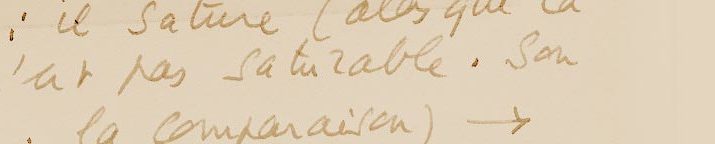 : il sature (alors que la
n'est pas saturable. Son
. la comparaison) →